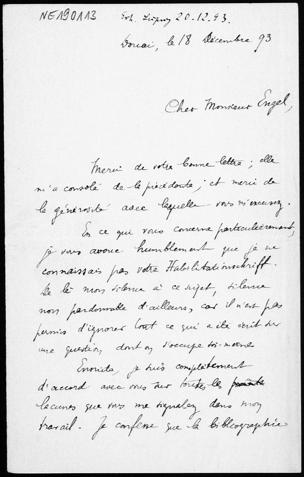 NE190113
20.12.93.
Douai, le 18 Décembre 93
Cher Monsieur Engel,
Merci de votre bonne lettre ; elle
m'a consolé de la précédente ; et merci de
la générosité avec laquelle vous m'excusez.
En ce qui vous concerne particulièrement,
je vous avoue humblement que je ne
connaissais pas votre Habilitationsschrift.
De là mon silence à ce sujet, silence
non pardonnable d'ailleurs, car il n'est pas
permis d'ignorer tout ce qui a été écrit sur
une question dont on s'occupe soi-même.
Ensuite, je suis complètement
d'accord avec vous sur toutes les
lacunes que vous me signalez dans mon
travail. Je confesse que la bibliographie